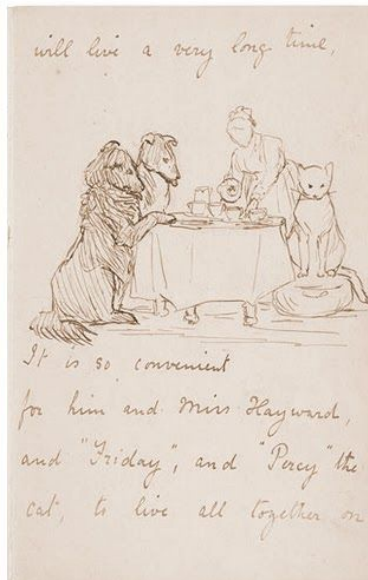 will live a very long time,
It is so convenient
for him and Miss Hayward,
and "Friday", and "Percy" the
cat, to live all together on